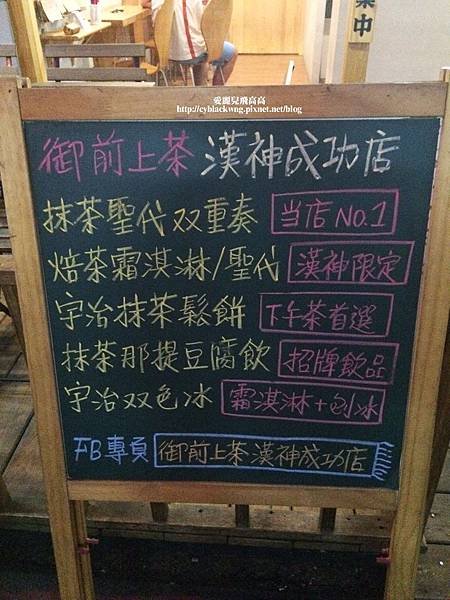 業中
愛麗兒飛高高
http://cyblackwng.pixnet.net/blog
御前上茶 漢神成功店
抹茶聖代双重奏 当店NO.1
焙茶霜淇淋/聖代 漢神限定
宇治抹茶鬆餅 下午茶首選
抹茶那提豆腐飲 招牌飲品
宇治双色冰 霜淇淋+刨冰
FB專頁 御前上茶 漢神成功店